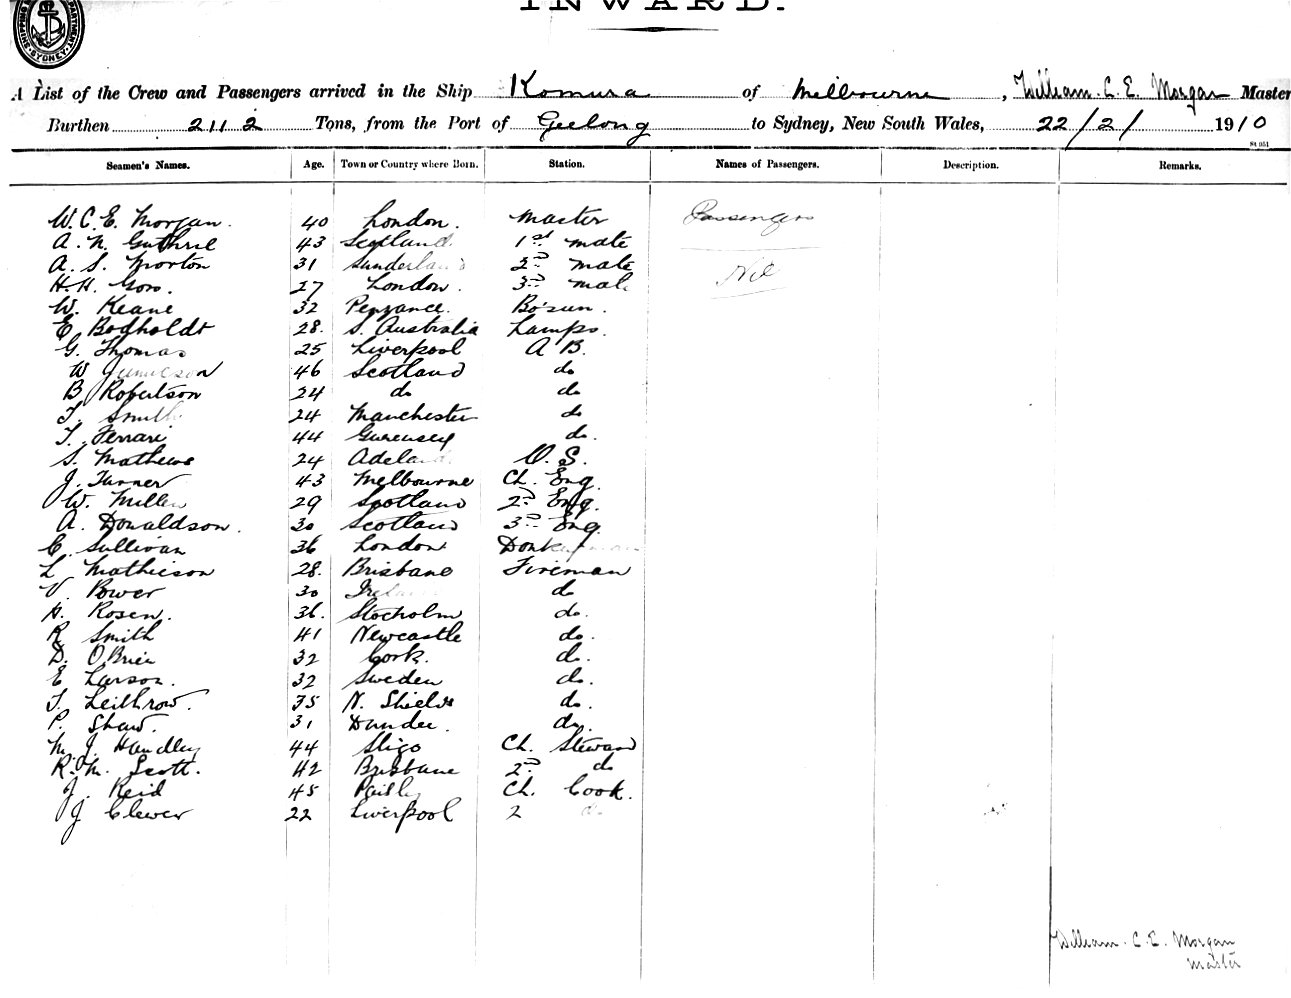 INWARD.
SYDNEY
A List of the Crew and Passengers arrived in the Ship Komura of Melbourne, William. C. E. Morgan Master
Burthen 2112 Tons, from the Port of Geelong to Sydney, New South Wales, 22/2/ 1910
Seamen's Names. Age. Town or Country where Born. Station. Names of Passengers. Description. Remarks.
W. C. E. Morgan. 40 London. Master Passengers
A. N. Guthrie 43 Scotland. 1st mate
A. S. Morton 31 Sunderland 2nd mate Nil
H. H. 27 London. 3rd mate
W. Keane 32 Penzance. Bo'sun.
E Bodholdt 28. S. Australia Lamps.
G. Thomas 25 Liverpool A B.
W Jamieson 46 Scotland do
B Robertson 24 do do
T. Smith 24 Manchester do
T. Ferrari 44 Guernsey do.
S. Mathews 24 Adelaide O. S.
J. Turner 43 Melbourne Ch. Eng.
W. Miller 29 Scotland 2nd Eng.
A. Donaldson. 30 Scotland 3rd Eng
C. Sullivan 36 London Donkeyman
L Mathieson 28. Brisbane Fireman
V. Power 30 Ireland do
H. Rosen. 36. Stocholm do.
R Smith 41 Newcastle do.
D. O'Brien 32 Cork. do.
E Larson. 32 Sweden do.
T. Leithrow. 35 N. Shields do.
P. Shaw. 31 Dundee. do.
M. J. Handley 44 Sligo Ch. Steward
R. M. Scott. 42 Brisbane 2nd do
J. Reid 45 Paisley Ch. Cook.
J Clewer 22 Liverpool 2 do
William. C. E. Morgan
Master